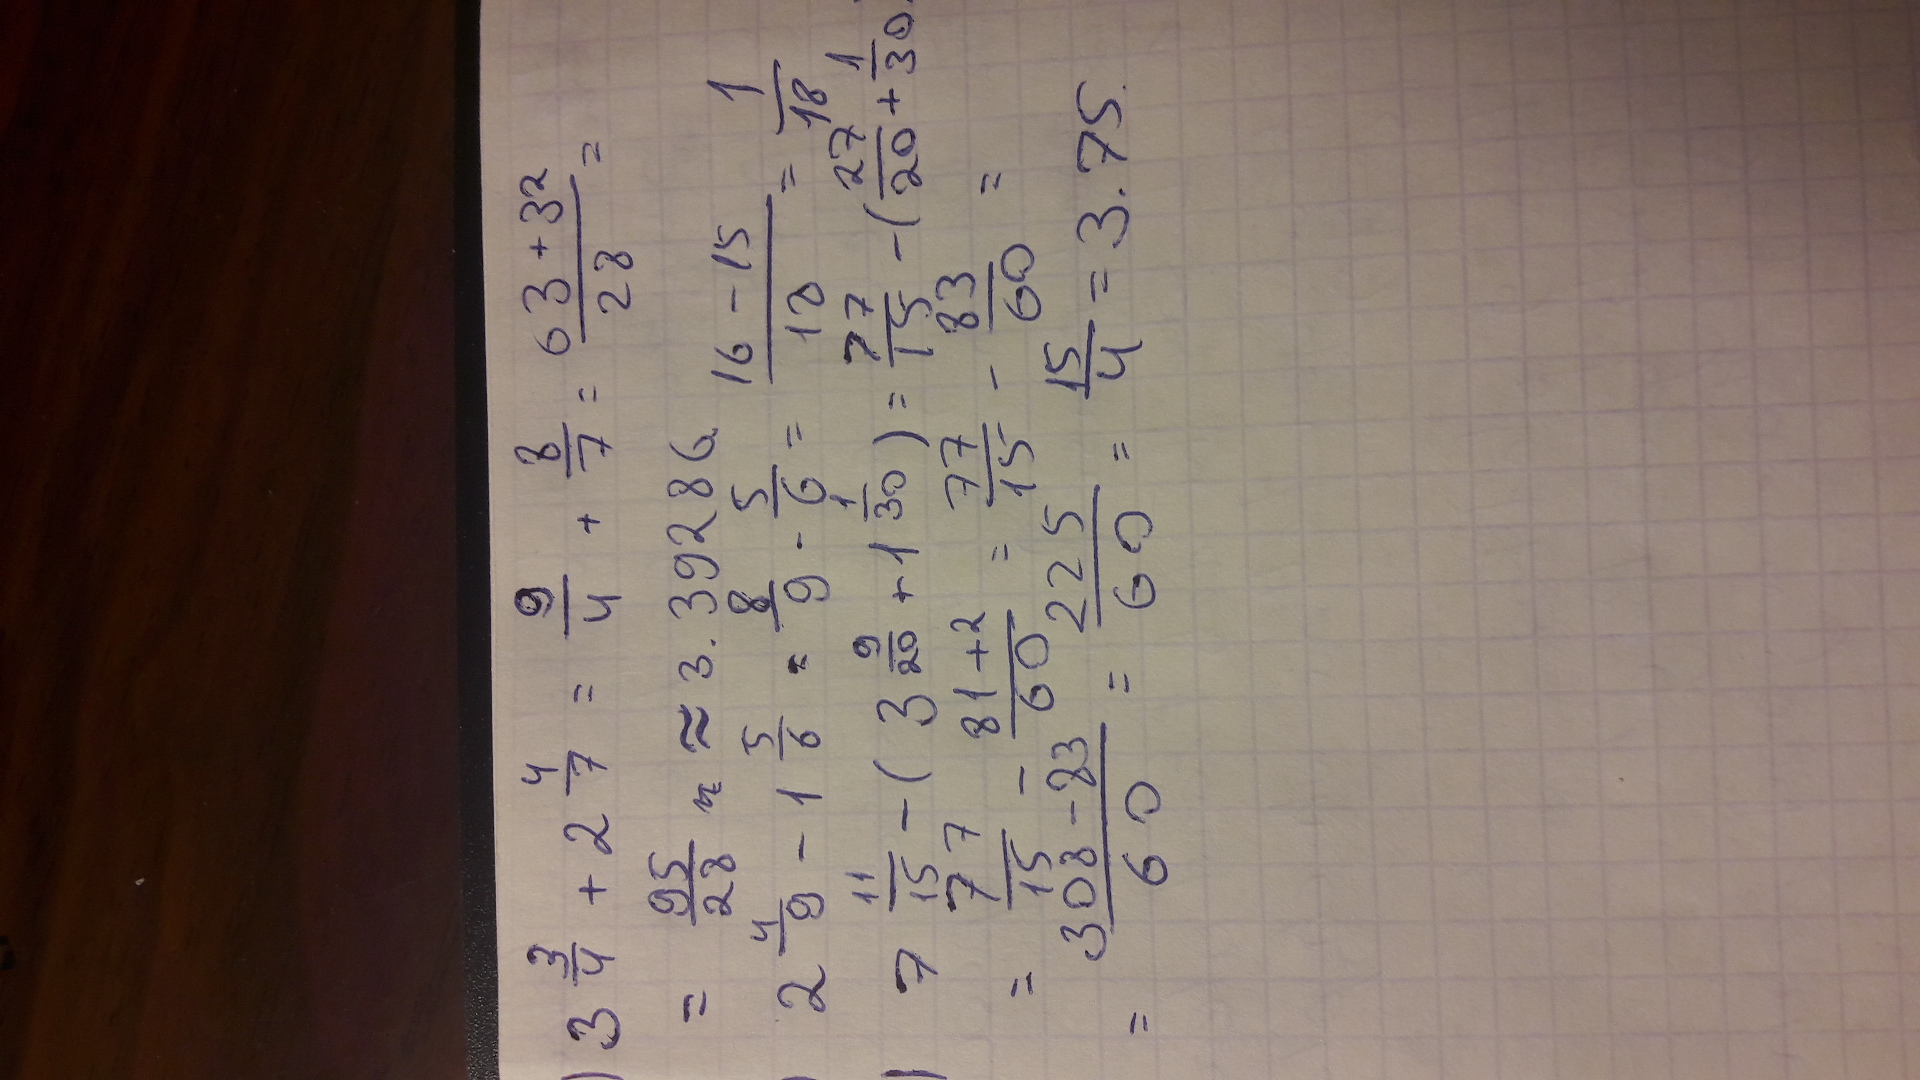 ) 3 3/4 + 2 4/7 = 9/4 + 8/7 = (63+32)/28 =
= 95/28 ≈ 3.39286
) 2 4/9 - 1 5/6 = 8/9 - 5/6 = (16-15)/18 = 1/18
) 7 11/15 - (3 9/20 + 1 1/30) = 77/15 - (27/20 + 1/30)
= 77/15 - (81+2)/60 = 77/15 - 83/60 =
= (308-83)/60 = 225/60 = 15/4 = 3.75.